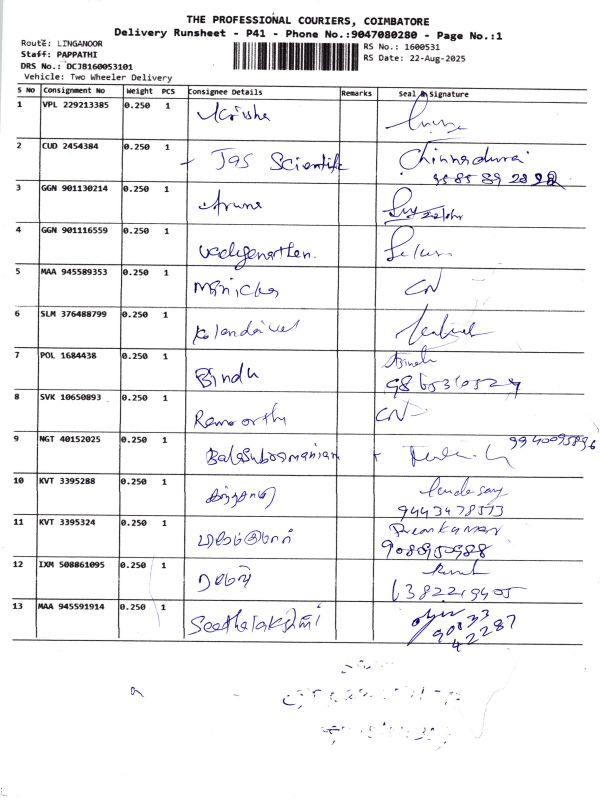 THE PROFESSIONAL COURIERS, COIMBATORE
Delivery Runsheet - P41 - Phone No.:9047080280 - Page No.:1
Route: LINGANOOR
Staff: PAPPATHI
DRS No.: DCJB160053101
Vehicle: Two Wheeler Delivery
RS No.: 1600531
RS Date: 22-Aug-2025
S No Consignment No Weight PCS Consignee Details Remarks Seal & Signature
1 VPL 229213385 0.250 1 Krisha
2 CUD 2454384 0.250 1 Jas Scientific Chinnadurai
3 GGN 901130214 0.250 1 Aruna
4 GGN 901116559 0.250 1 Selvam
5 MAA 945589353 0.250 1 CN
6 SLM 376488799 0.250 1 Kolandaivel
7 POL 1684438 0.250 1 Bindu Bindu
9865310527
8 SVK 10650893 0.250 1 CN
9 NGT 40152025 0.250 1 Balasubramanian 9940095896
10 KVT 3395288 0.250 1
9443478573
11 KVT 3395324 0.250 1
9080950988
12 IXM 508861095 0.250 1
6382219405
13 MAA 945591914 0.250 1 Seethalakshmi
90033
42287